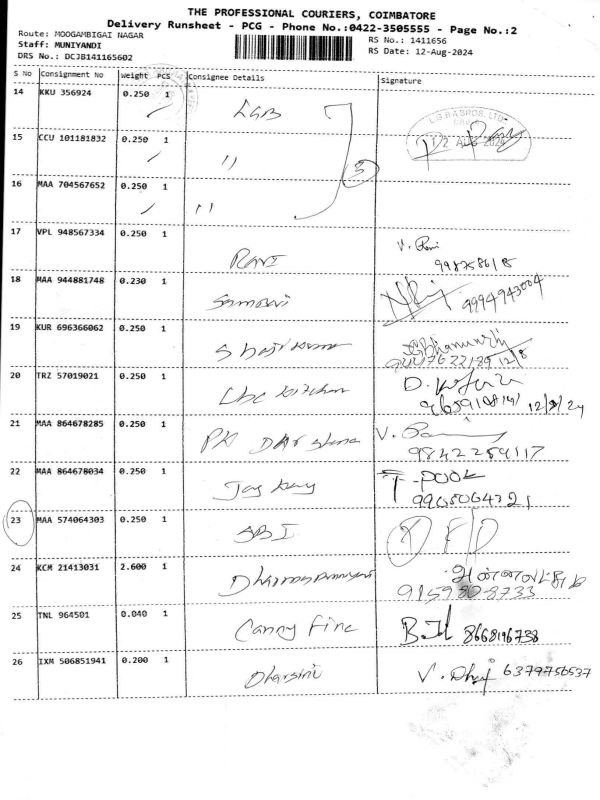 THE PROFESSIONAL COURIERS, COIMBATORE
Delivery Runsheet - PCG - Phone No.:0422-3505555 - Page No.:2
Route: MOOGAMBIGAI NAGAR
RS No.: 1411656
Staff: MUNIYANDI
RS Date: 12-Aug-2024
DRS No.: DCJB141165602
S No Consignment No Weight PCS Consignee Details Signature
14 KKU 356924 0.250 1 LGB
L.G.B ASPOS. LTD
12 AUG 2024
15 CCU 101181832 0.250 1 "
3
16 MAA 704567652 0.250 1 "
17 VPL 948567334 0.250 1 RAVI V. Rani
18 MAA 944881748 0.230 1 9994943004
19 KUR 696366062 0.250 1 12/8
20 TRZ 57019021 0.250 1 Lbc kitchen D. 12/8/24
21 MAA 864678285 0.250 1 PK Darshana V.
9842259117
22 MAA 864678034 0.250 1 Jay
9965064321
23 MAA 574064303 0.250 1 SBI
24 KCM 21413031 2.600 1
9159808733
25 TNL 964501 0.040 1 Canny Fine 8668196738
26 IXM 506851941 0.200 1 Dharsini V. 6379756537